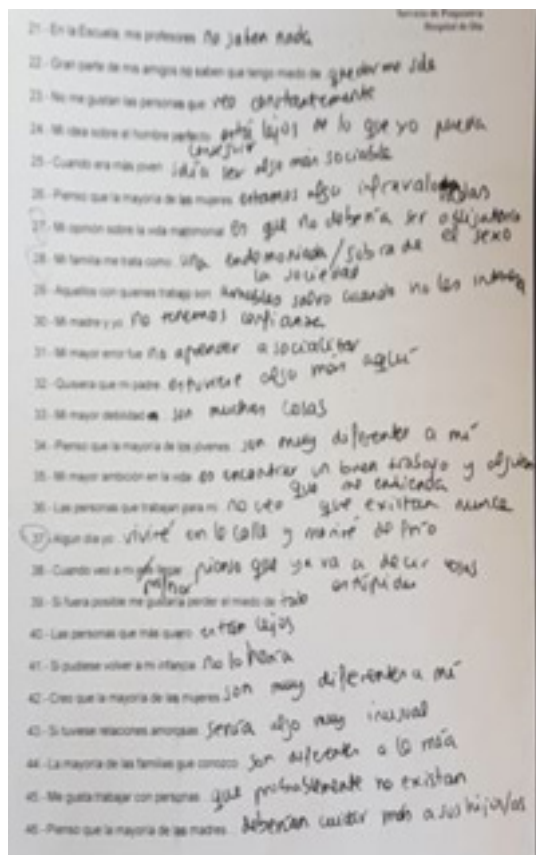 Servicio de Psiquiatría
Hospital de Día
21.- En la Escuela, mis profesores no saben nada
22.- Gran parte de mis amigos no saben que tengo miedo de quedarme sola
23.- No me gustan las personas que veo constantemente
24.- Mi idea sobre el hombre perfecto está lejos de lo que yo pueda
conseguir
25.- Cuando era más joven solía ser algo más sociable
26.- Pienso que la mayoría de las mujeres estamos algo infravaloradas
27.- Mi opinión sobre la vida matrimonial es que no debería ser obligatorio
el sexo
28.- Mi familia me trata como una endemoniada / sobra de
la sociedad
29.- Aquellos con quienes trabajo son amables salvo cuando no les interesa
30.- Mi madre y yo no tenemos confianza
31.- Mi mayor error fue no aprender a socializar
32.- Quisiera que mi padre estuviese algo más aquí
33.- Mi mayor debilidad son muchas cosas
34.- Pienso que la mayoría de los jóvenes son muy diferentes a mí
35.- Mi mayor ambición en la vida es encontrar un buen trabajo y alguien
que me entienda
36.- Las personas que trabajan para mi no veo que existan nunca
37.- Algun día yo viviré en la calle y moriré de frío
38.- Cuando veo a mi pienso que ya va a decir cosas
estúpidas
39.- Si fuera posible me gustaría perder el miedo de todo
40.- Las personas que más quiero están lejos
41.- Si pudiese volver a mi infancia no lo haría
42.- Creo que la mayoría de las mujeres son muy diferentes a mí
43.- Si tuviese relaciones amorosas sería algo muy inusual
44.- La mayoría de las familias que conozco son diferentes a la mía
45.- Me gusta trabajar con personas que probablemente no existan
46.- Pienso que la mayoría de las madres deberían cuidar más a sus hijos/as